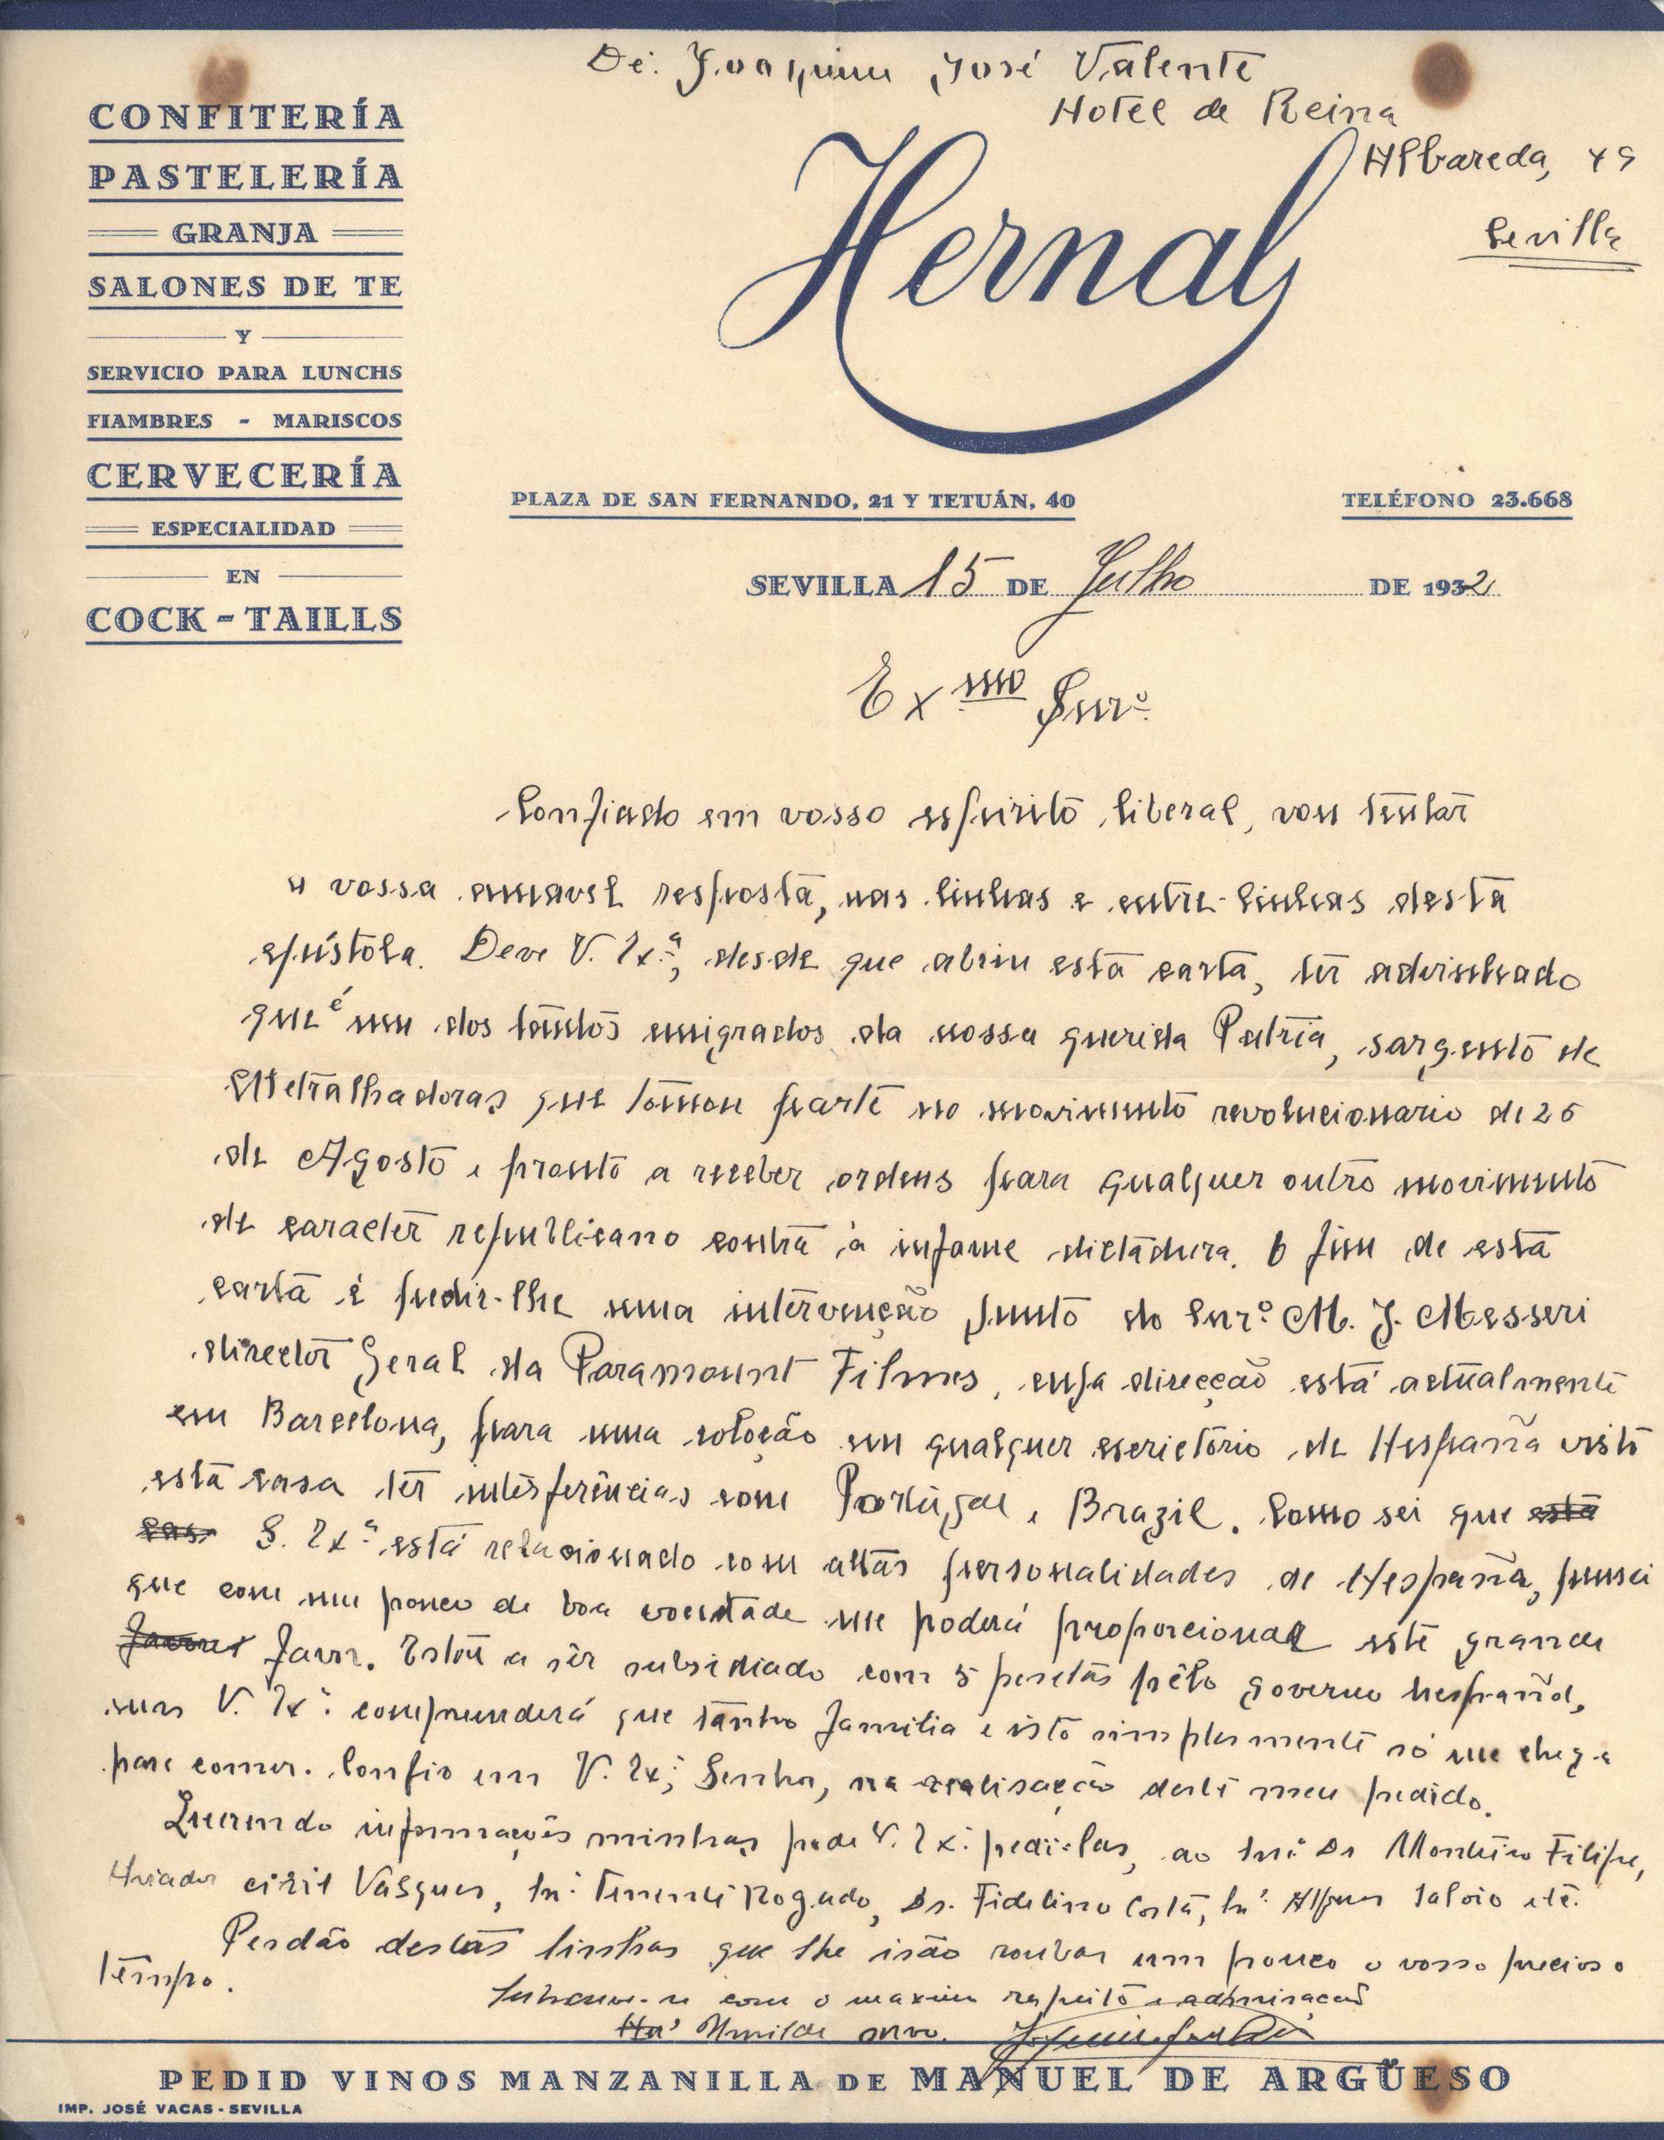 De: Joaquim José Valente
Hotel de Reina
Albareda, 49
Sevilla
CONFITERÍA
PASTELERÍA
GRANJA
SALONES DE TE
Y
SERVICIO PARA LUNCHS
FIAMBRES - MARISCOS
CERVECERÍA
ESPECIALIDAD
EN
COCK-TAILLS
Hernal
PLAZA DE SAN FERNANDO, 21 Y TETUÁN, 40
TELÉFONO 23.668
SEVILLA 15 DE Julho DE 1932
Exmo Snrº
Confiado em vosso espirito liberal, vou tentar
a vossa amavel resposta, nas linhas e entre-linhas desta
epístola. Deve V. Exª, desde que abriu esta carta, ter advinhado
que é um dos tantos emigrados da nossa querida Patria, sargento de
Metralhadoras que tomou parte no movimento revolucionario de 26
de Agosto e pronto a receber ordens para qualquer outro movimento
de caracter republicano contra a infame dictadura. O fim de esta
carta é pedir-lhe uma intervenção junto do Snrº M. J. Messeri
director Geral da Paramount Filmes, cuja direcção está actualmente
em Barcelona, para uma coloção em qualquer escrictório de Hespaña visto
esta casa ter interferências com Portugal e Brazil. Como sei que esta
cas S. Exª está relacionado com altas personalidades de Hespaña, pensei
que com um pouco de boa vontade me poderá proporcionar este grande
favor. Estou a sêr subsidiado com 5 pesetas pêlo governo hespañol,
mas V. Exª compreenderá que tanho familia e isto simplesmente só me chega
para comer. Confio em V. Exª, Senhor, na realisação deste meu pedido.
Querendo informações minhas pode V. Exª pedi-las, ao Snrº Dr Monteiro Filipe,
Aviador civil Vasques, Snr. Tenente Rogado, Dr. Fidelino Costa, Snr. Alferes Saloio etc.
Perdão destas linhas que lhe irão roubar um pouco o vosso precioso
tempo.
Subscreve-se com o maximo respeito e admiração
Humilde servo.
PEDID VINOS MANZANILLA DE MANUEL DE ARGÜESO
IMP. JOSÉ VACAS - SEVILLA